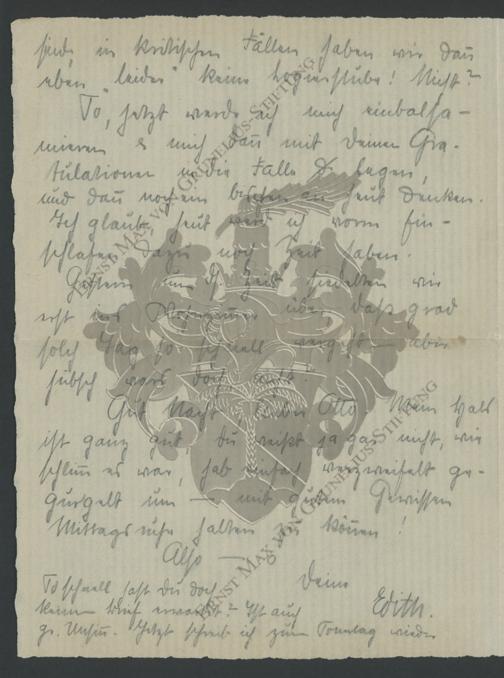 sind, in kritischen Fällen haben wir dann
eben "leider" keine Logierstube! Nicht?
So, jetzt werde ich mich einbalsa-
mieren & mich dann mit Deinen Gra-
tulationen in die Falle legen,
und dann noch ein bischen an heut denken.
Ich glaube, heut werd ich vorm Ein-
schlafen dazu noch Zeit haben.
Gestern um d. Zeit
erst im über, daß grad
solch Tag so schnell vergeht aber
hübsch wars doch
Gut Nacht Otto. Mein Hals
ist ganz gut, du weißt ja gar nicht, wie
schlimm es war, hab einfach verzweifelt ge-
gurgelt um — mit gutem Gewissen
Mittagsruhe halten zu können!
Also —
Deine
Edith.
So schnell hast Du doch
keinen Brief erwartet? Ist auch
gr. Unsinn. Jetzt schreib ich zum Sonntag wieder
ERNST MAX VON GRUNELIUS-STIFTUNG
ERNST MAX VON GRUNELIUS-STIFTUNG